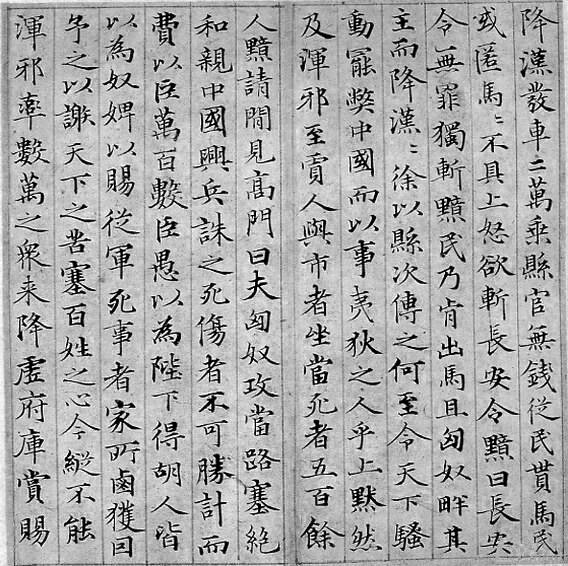 降漢發車二萬乗縣官無錢從民貰馬民
或匿馬〻不具上怒欲斬長安令黯曰長安
令無罪獨斬黯民乃肯出馬且匈奴畔其
主而降漢〻徐以縣次傳之何至令天下騷
動罷弊中國而以事夷狄之人乎上黙然
及渾邪至賈人與市者坐當死者五百餘
人黯請間見髙門曰夫匈奴攻當路塞絶
和親中國興兵誅之死傷者不可勝計而
費以巨萬百數臣愚以為陛下得胡人皆
以為奴婢以賜從軍死事者家所鹵獲因
予之以謝天下之苦塞百姓之心今縱不能
渾邪率數萬之衆来降虚府庫賞賜